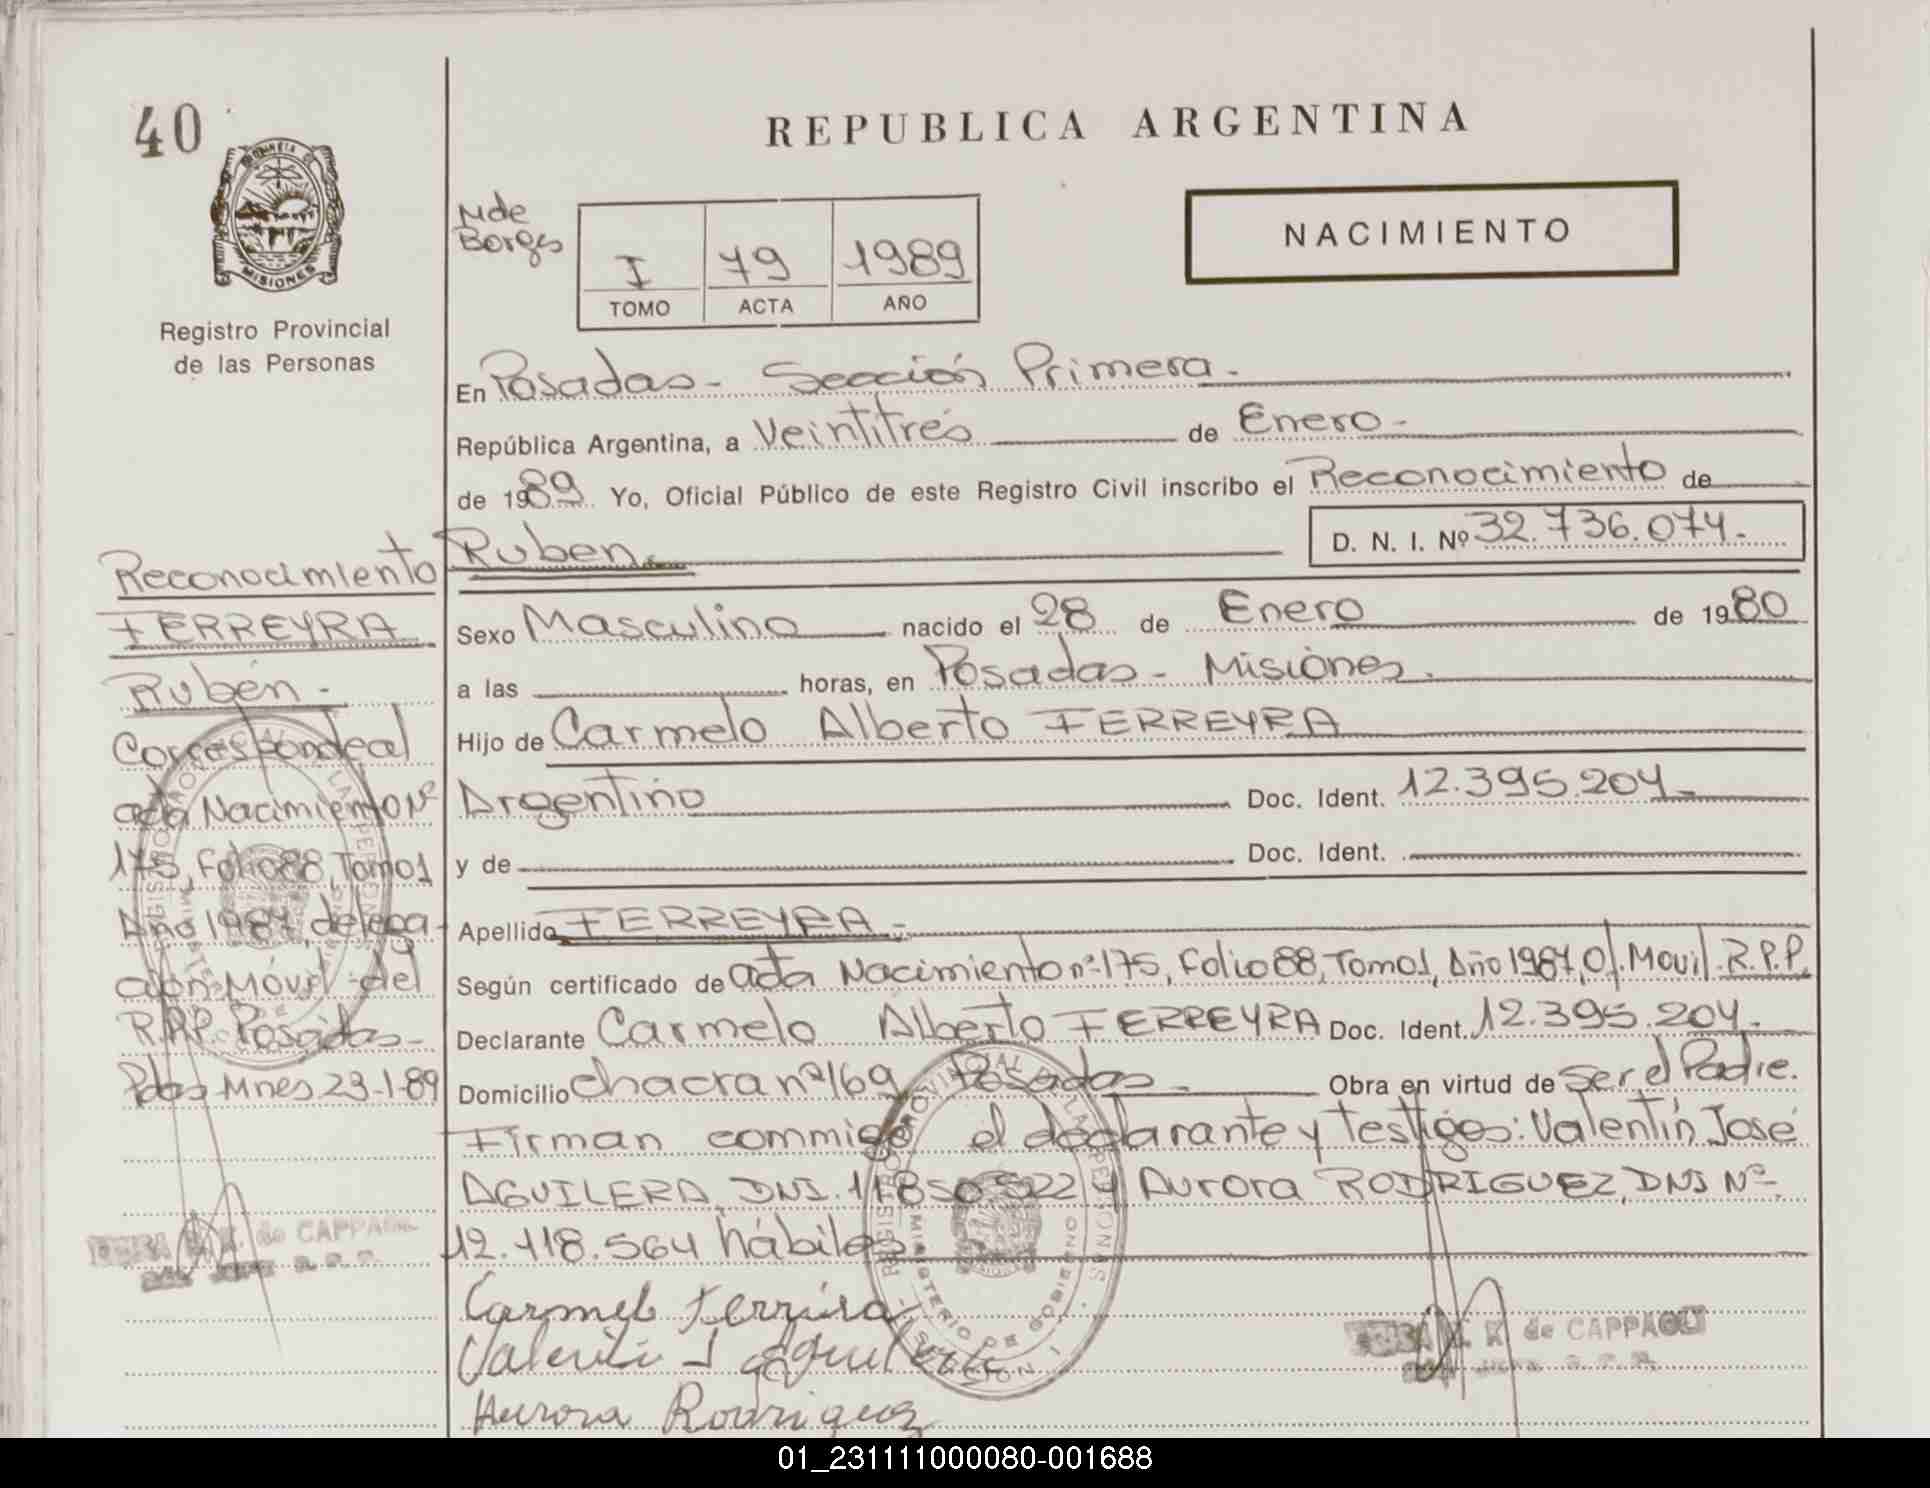 40
REPUBLICA ARGENTINA
PROVINCIA DE
MISIONES
Registro Provincial
de las Personas
Mde
Borges
I 79 1989
TOMO ACTA AÑO
NACIMIENTO
En Posadas - Sección Primera -
República Argentina, a Veintitrés de Enero -
de 1989 Yo, Oficial Público de este Registro Civil inscribo el Reconocimiento de
Ruben.
D. N. I. Nº 32.736.074.-
Sexo Masculino nacido el 28 de Enero de 1980
a las horas, en Posadas - Misiones.
Hijo de Carmelo Alberto FERREYRA
Argentino Doc. Ident. 12.395.204 -
y de Doc. Ident.
Apellido FERREYRA -
Según certificado de acta Nacimiento nº 175, Folio 88, Tomo 1, Año 1987, Of. Movil. R.P.P.
Declarante Carmelo Alberto FERREYRA Doc. Ident. 12.395.204.-
Domicilio chacra nº 169 Posadas - Obra en virtud de Ser el Padre.
Firman commigo el declarante y testigos: Valentín José
AGUILERA, DNI. 11.850.522 y Aurora RODRIGUEZ, DNI Nº
12.118.564 hábiles
Carmelo Ferreira
Valentin J Aguilera
Aurora Rodriguez
de CAPPAGLI
Reconocimiento
FERREYRA
Rubén -
Corresponde al
acta Nacimiento Nº
175, Folio 88, Tomo 1
Año 1987, delega-
ción Móvil del
R.P.P. Posadas -
Pdas Mnes 23-1-89
de CAPPAGLI
REGISTRO PROVINCIAL DE LAS PERSONAS
MINISTERIO DE GOBIERNO
01_231111000080-001688